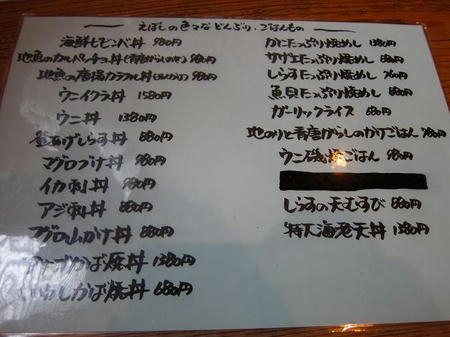 えぼしの色々などんぶり・ごはんもの
海鮮もとこべ丼 980円
地魚のカルパッチョ丼(青唐がらしのせ) 980円
地魚の唐揚 丼 980円
ウニイクラ丼 1580円
ウニ丼 1380円
釜あげしらす丼 880円
マグロづけ丼 880円
イカ刺丼 880円
アジ刺丼 880円
マグロ山かけ丼 880円
かば焼丼 1380円
いわしかば焼丼 680円
かにたっぷり焼めし 1380円
サザエたっぷり焼めし 880円
しらすたっぷり焼めし 760円
魚貝たっぷり焼めし 880円
ガーリックライス 680円
地のりと青唐がらしのかりごはん 780円
ウニ磯ごはん 980円
しらすの天むすび 880円
特大海老天丼 1380円